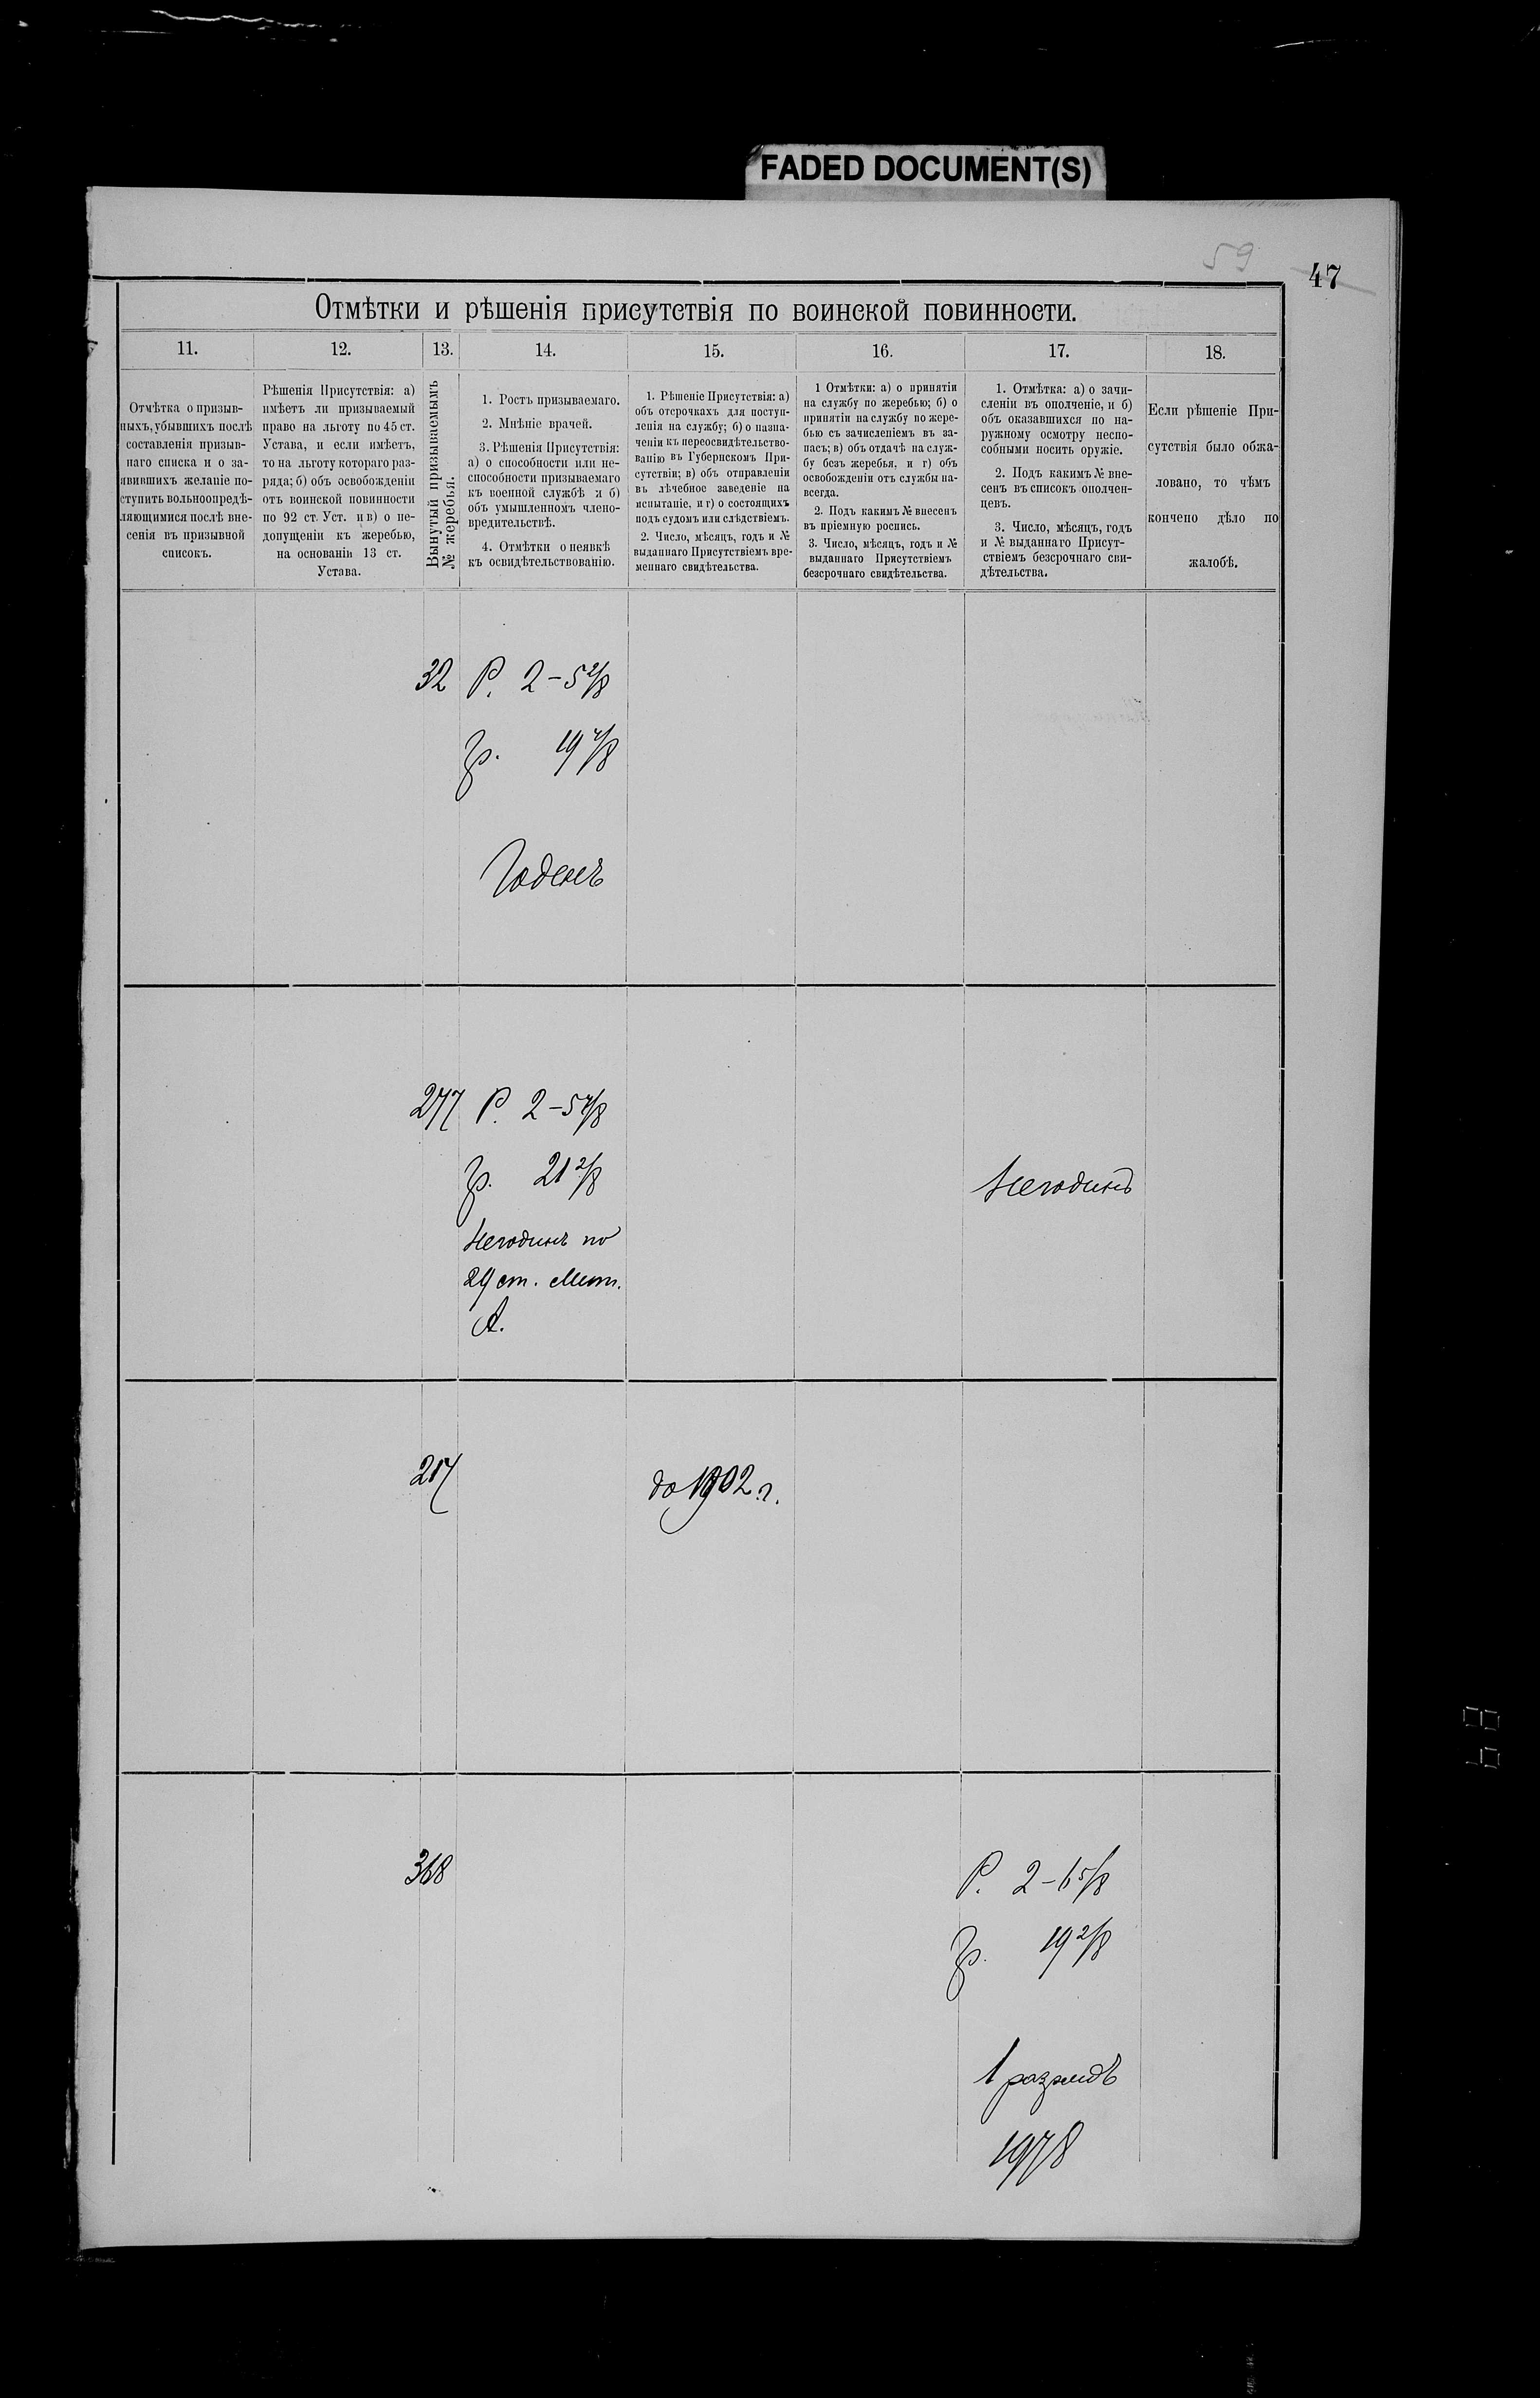 FADED DOCUMENT(S)
59
47
Отмѣтки и рѣшенія присутствія по воинской повинности.
11.
12.
13.
14.
15.
16.
17.
18.
Отмѣтка о призыв-
ныхъ, убывшихъ послѣ
составленія призыв-
наго списка и о за-
явившихъ желаніе по-
ступить вольноопредѣ-
ляющимися послѣ вне-
сенія въ призывной
списокъ.
Рѣшенія Присутствія: а)
имѣетъ ли призываемый
право на льготу по 45 ст.
Устава, и если имѣетъ,
то на льготу котораго раз-
ряда; б) объ освобожденіи
отъ воинской повинности
по 92 ст. Уст. и в) о не-
допущеніи къ жеребью,
на основаніи 13 ст.
Устава.
Вынутый призываемымъ
№ жеребья.
1. Ростъ призываемаго.
2. Мнѣніе врачей.
3. Рѣшенія Присутствія:
а) о способности или не-
способности призываемаго
къ военной службѣ и б)
объ умышленномъ члено-
вредительствѣ.
4. Отмѣтки о неявкѣ
къ освидѣтельствованію.
1. Рѣшеніе Присутствія: а)
объ отсрочкахъ для поступ-
ленія на службу; б) о назна-
ченіи къ переосвидѣтельство-
ванію въ Губернскомъ При-
сутствіи; в) объ отправленіи
въ лѣчебное заведеніе на
испытаніе, и г) о состоящихъ
подъ судомъ или слѣдствіемъ.
2. Число, мѣсяцъ, годъ и №
выданнаго Присутствіемъ вре-
меннаго свидѣтельства.
1 Отмѣтки: а) о принятіи
на службу по жеребью; б) о
принятіи на службу по жере-
бью съ зачисленіемъ въ за-
пасъ; в) объ отдачѣ на служ-
бу безъ жеребья, и г) объ
освобожденіи отъ службы на-
всегда.
2. Подъ какимъ № внесенъ
въ пріемную роспись.
3. Число, мѣсяцъ, годъ и №
выданнаго Присутствіемъ
безсрочнаго свидѣтельства.
1. Отмѣтка: а) о зачи-
сленіи въ ополченіе, и б)
объ оказавшихся по на-
ружному осмотру неспо-
собными носить оружіе.
2. Подъ какимъ № вне-
сенъ въ списокъ ополчен-
цевъ.
3. Число, мѣсяцъ, годъ
и № выданнаго Присут-
ствіемъ безсрочнаго сви-
дѣтельства.
Если рѣшеніе При-
сутствія было обжа-
ловано, то чѣмъ
кончено дѣло по
жалобѣ.
32 Р. 2-5 2/8
гр. 19 4/8
Годенъ
277 Р. 2-5 4/8
гр. 21 2/8
Негоденъ по
29 ст. Лит.
А.
Негоденъ
217
до 1902 г.
368
Р. 2-6 5/8
гр. 19 2/8
1 разрядъ
1978